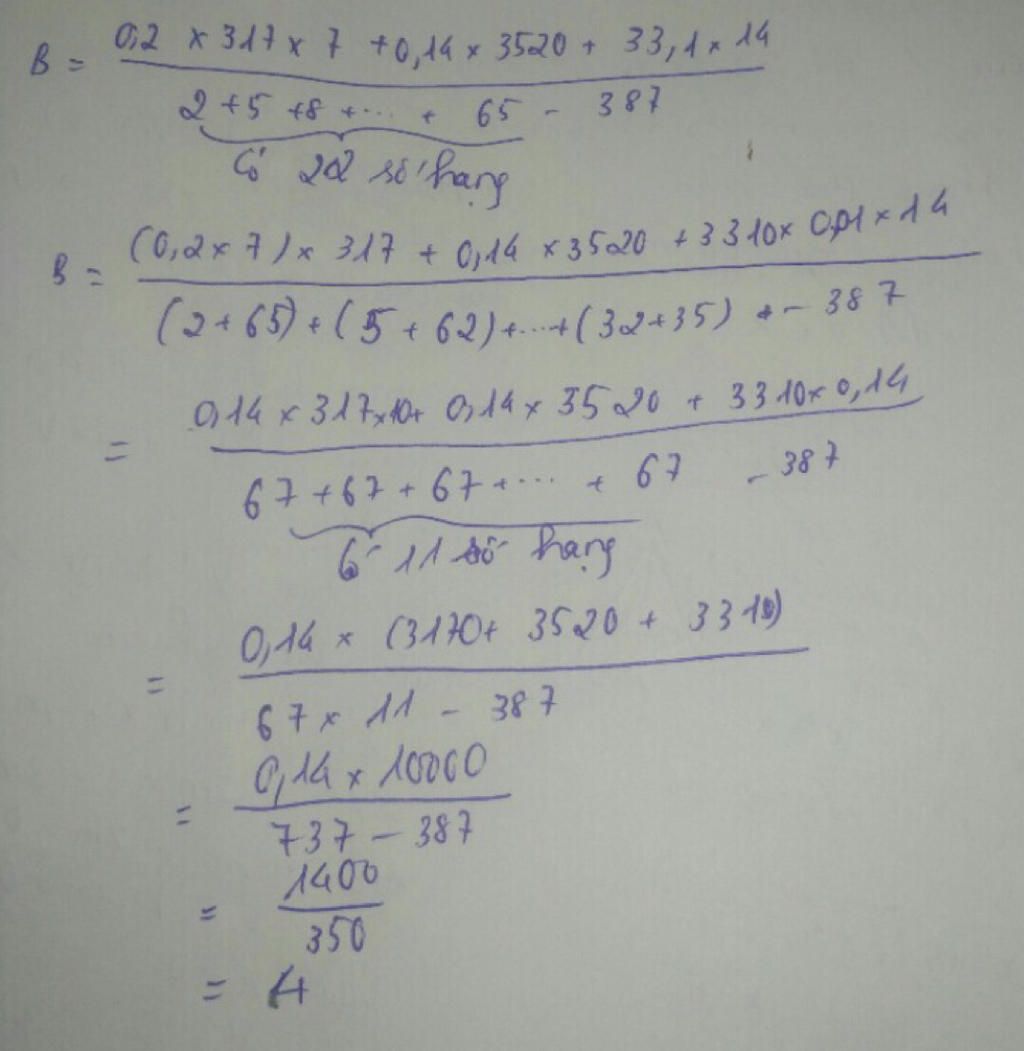 B =
0,2 × 317 × 7 + 0,14 × 3520 + 33,1 × 14
2 + 5 + 8 + ... + 65 - 387
Có 22 số hạng
B =
(0,2 × 7) × 317 + 0,14 × 3520 + 3310 × 0,01 × 14
(2 + 65) + (5 + 62) + ... + (32 + 35) - 387
=
0,14 × 317 × 10 + 0,14 × 3520 + 3310 × 0,14
67 + 67 + 67 + ... + 67 - 387
Có 11 số hạng
=
0,14 × (3170 + 3520 + 3310)
67 × 11 - 387
=
0,14 × 10000
737 - 387
=
1400
350
= 4